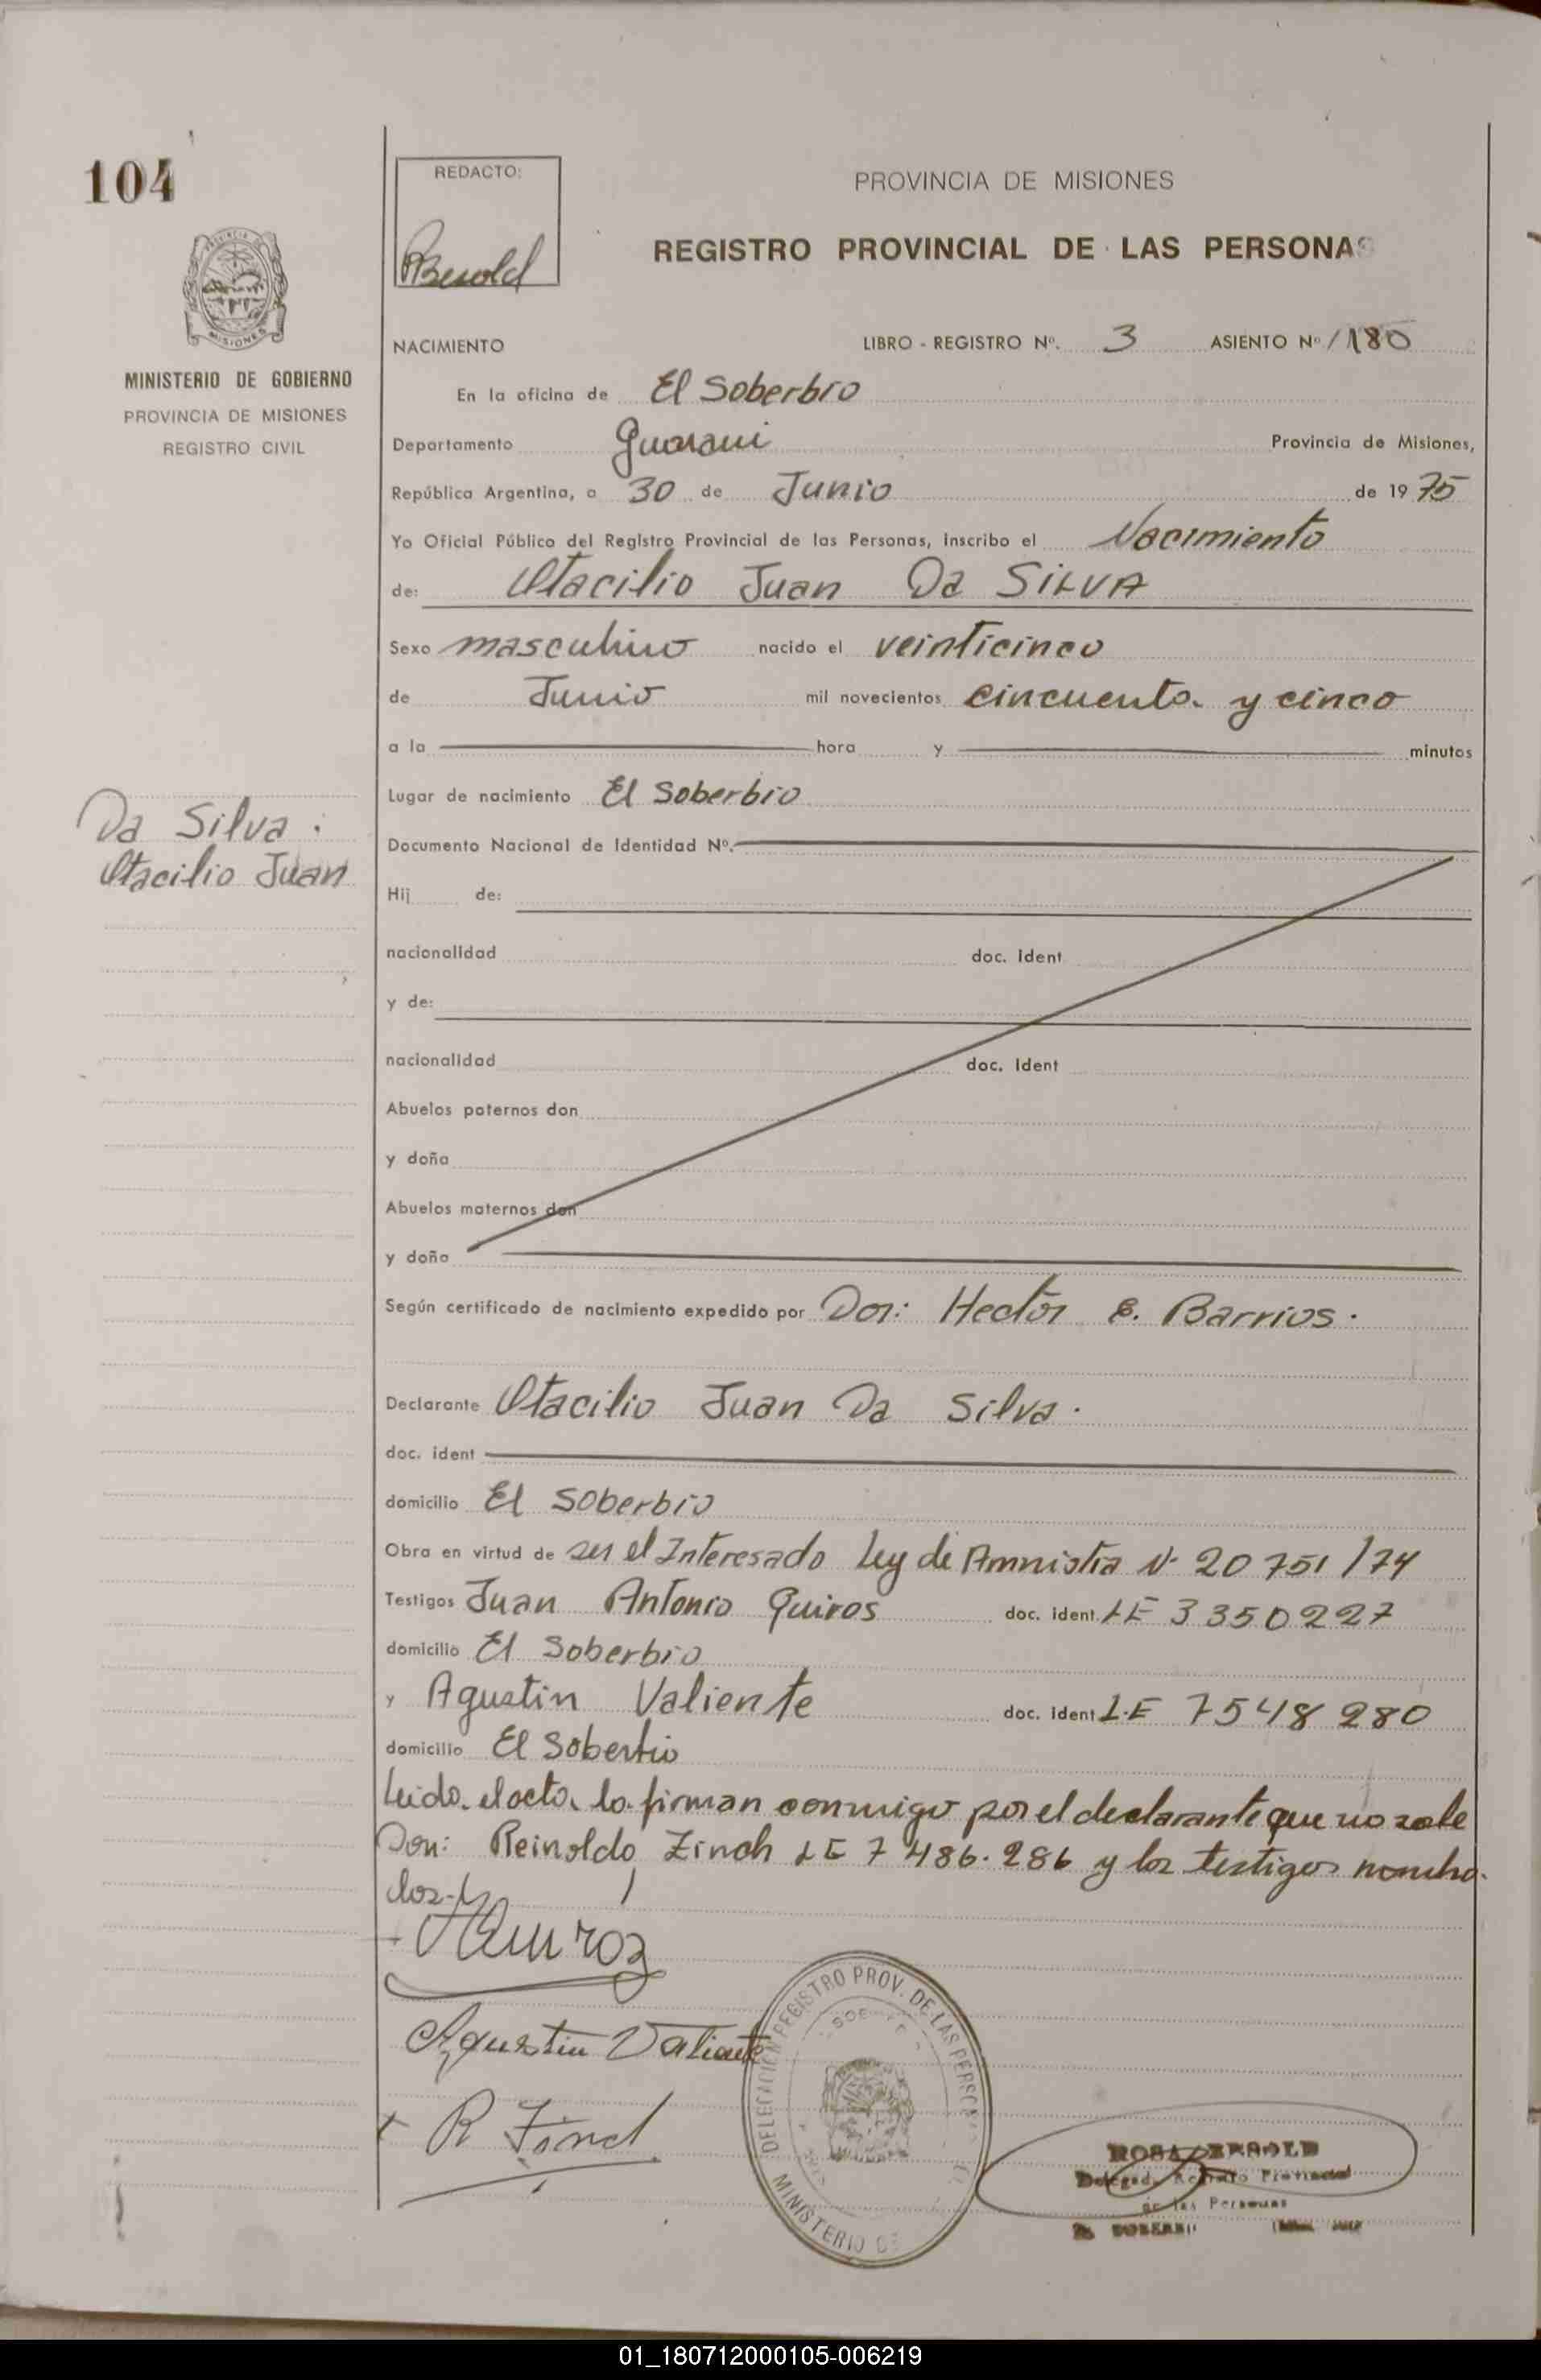 104
REDACTO:
PBesold
PROVINCIA DE MISIONES
REGISTRO PROVINCIAL DE LAS PERSONAS
MINISTERIO DE GOBIERNO
PROVINCIA DE MISIONES
REGISTRO CIVIL
NACIMIENTO LIBRO - REGISTRO Nº. 3 ASIENTO Nº /180
En la oficina de El Soberbio
Departamento Guarani Provincia de Misiones,
República Argentina, a 30 de Junio de 1975
Yo Oficial Público del Registro Provincial de las Personas, inscribo el Nacimiento
de: Otacilio Juan Da SILVA
Sexo masculino nacido el veinticinco
de Junio mil novecientos cincuenta y cinco
a la hora y minutos
Lugar de nacimiento El Soberbio
Da Silva :
Otacilio Juan
Documento Nacional de Identidad Nº.
Hij de:
nacionalidad doc. Ident
y de:
nacionalidad doc. Ident
Abuelos paternos don
y doña
Abuelos maternos don
y doña
Según certificado de nacimiento expedido por Dor: Hector E. Barrios.
Declarante Otacilio Juan Da Silva.
doc. ident
domicilio El Soberbio
Obra en virtud de ser el Interesado Ley de Amnistia Nº 20751/74
Testigos Juan Antonio Quiros doc. ident. LE 3350227
domicilio El Soberbio
y Agustin Valiente doc. ident L.E 7548280
domicilio El Soberbio
Leida el acta la firman conmigo por el declarante que no sabe
Don: Reinoldo Zinch LE 7486.286 y los testigos nombra-
dos-
Agustin Valiente
R Finch
DELEGACION REGISTRO PROV. DE LAS PERSONAS
MINISTERIO DE
ROSA BESOLD
de las Personas
01_180712000105-006219